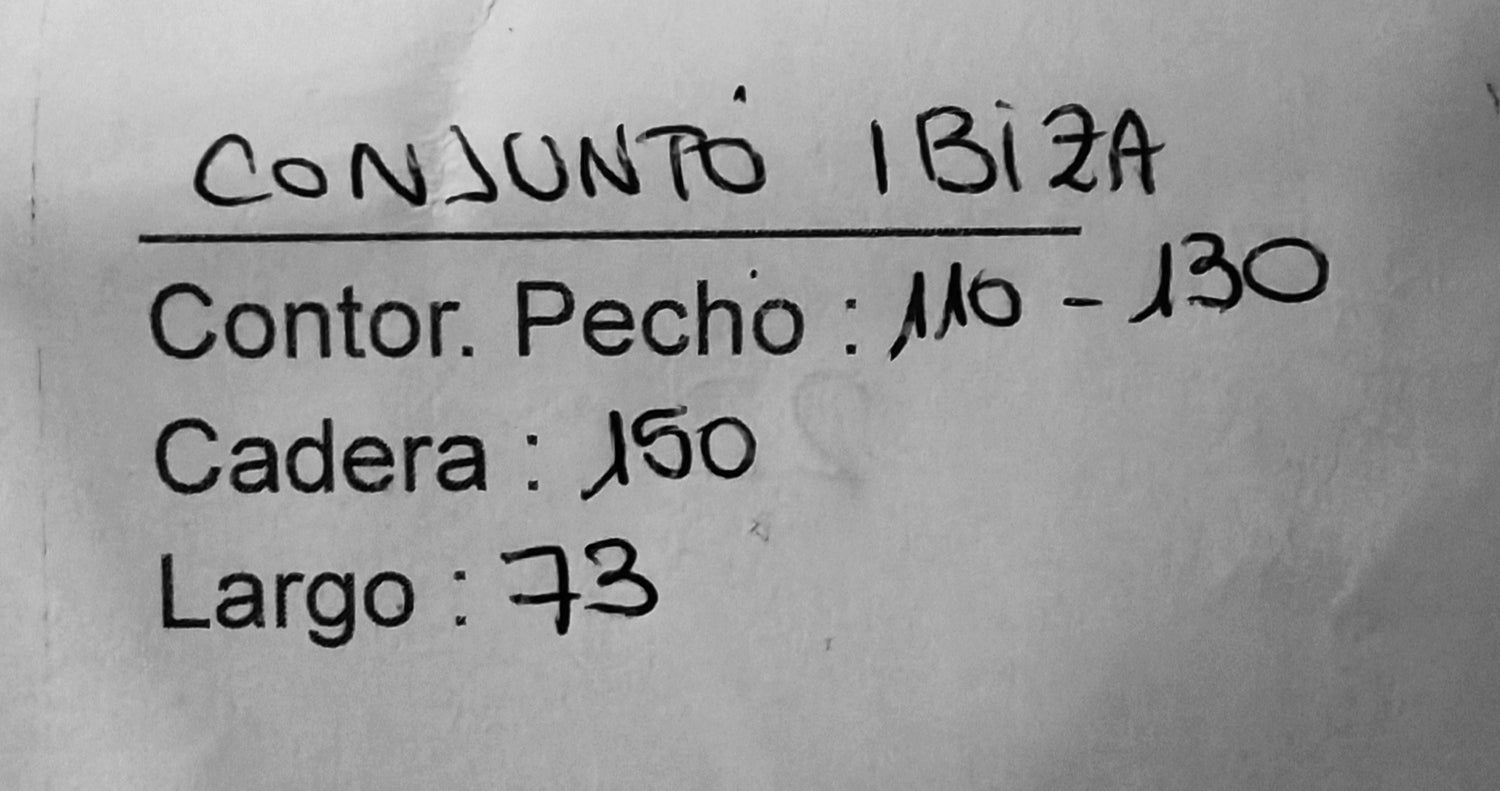 CONJUNTO IBIZA
Contor. Pecho : 110 - 130
Cadera : 150
Largo : 73